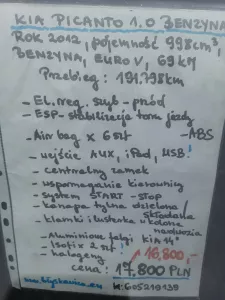 KIA PICANTO 1.0 BENZYNA
ROK 2012, pojemność 998cm³,
BENZYNA, EURO V, 69 KM
Przebieg: 191.798km
- EL. reg. szyb - przód
- ESP - stabilizacja toru jazdy
- ABS
- Air bag x 6szt
- wejście AUX, iPod, USB!
- centralny zamek
- wspomaganie kierownicy
- system START - STOP
- kanapa tylna dzielona/składana
- klamki i lusterka w kolorze nadwozia
- Aluminiowe felgi KIA 14"
- Isofix 2 szt!
- halogeny
16,800,-
cena: 17.800 PLN